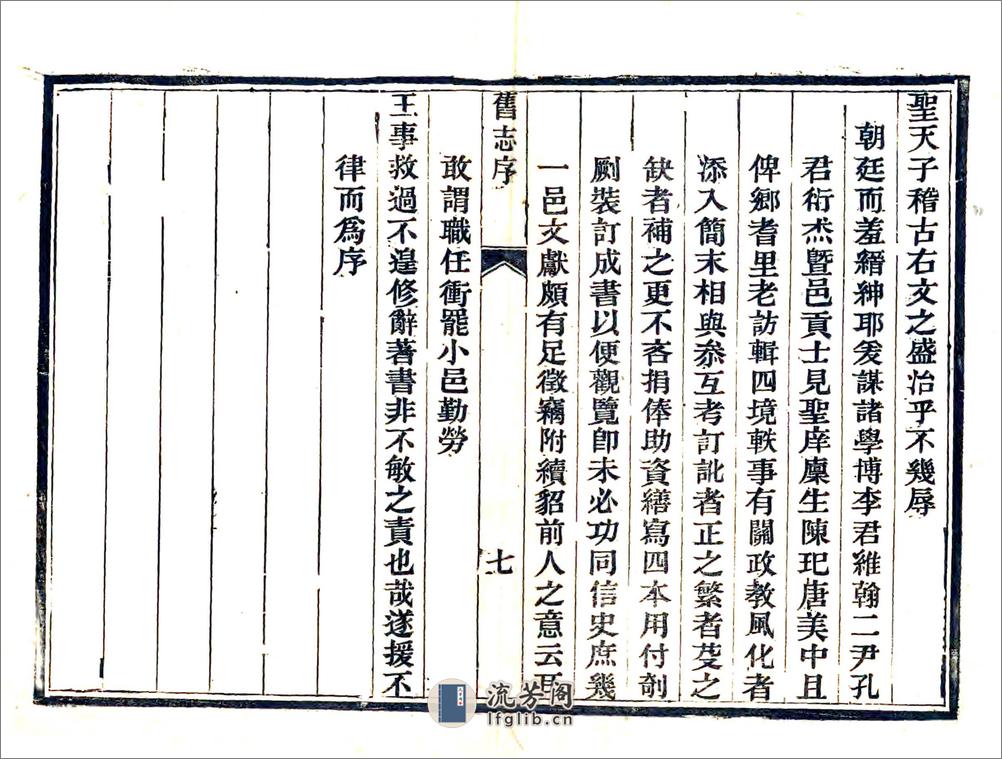 聖天子稽古右文之盛治乎不幾辱
朝廷而羞縉紳耶爰謀諸學博李君維翰二尹孔
君衍杰暨邑貢士見聖庠廩生陳玘唐美中且
俾鄉耆里老訪輯四境軼事有關政教風化者
添入簡末相與叅互考訂訛者正之繁者芟之
缺者補之更不吝捐俸助資繕寫四本用付剞
劂裝訂成書以便觀覽卽未必功同信史庶幾
一邑文獻頗有足徵竊附續貂前人之意云耳
舊志序
七
敢謂職任衝罷小邑勤勞
王事救過不遑修辭著書非不敏之責也哉遂援不
律而爲序
流芳阁
lfglib.cn